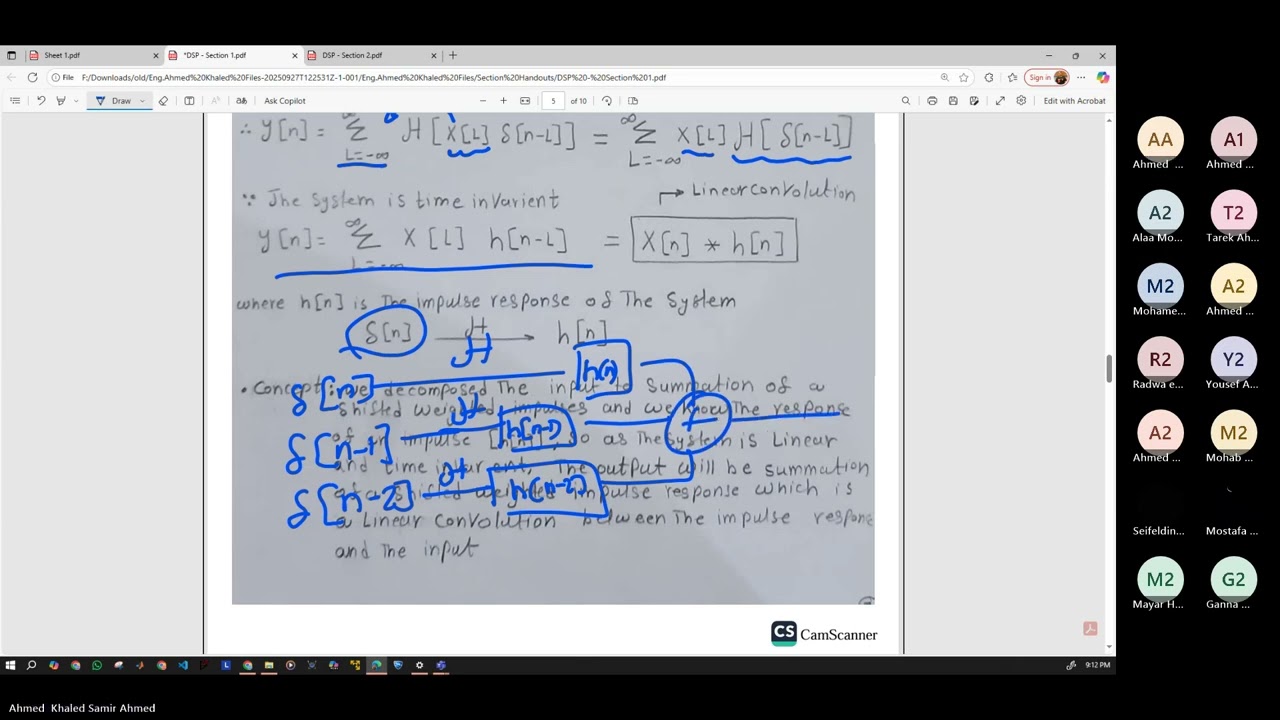 Sheet 1.pdf
*DSP - Section 1.pdf
DSP - Section 2.pdf
File
F:/Downloads/old/Eng.Ahmed%20Khaled%20Files-20250927T122531Z-1-001/Eng.Ahmed%20Khaled%20Files/Section%20Handouts/DSP%20-%20Section%201.pdf
Sign in
Draw
Ask Copilot
5 of 10
Edit with Acrobat
∴ y[n] = ∞ΣL=-∞ H[X[L] δ[n-L]] = ∞ΣL=-∞ X[L] H[δ[n-L]]
∵ The system is time invarient
Linear convolution
y[n] = ∞ΣL=-∞ X[L] h[n-L] = X[n] * h[n]
where h[n] is The impulse response of The System
δ[n] H → h[n]
H
δ[n] h(n)
• Concept: we decomposed The input to summation of a
shifted weighted impulses and we know The response
δ[n-1] H h[n-1] +
of an impulse [h[n]], so as The system is Linear
and time invarient, The output will be summation
δ[n-2] H h[n-2]
of a shifted weighted impulse response which is
a Linear convolution between The impulse respon
and The input
CS CamScanner
9:12 PM
AA
Ahmed ...
A1
Ahmed ...
A2
Alaa Mo...
T2
Tarek Ah...
M2
Mohame...
A2
Ahmed ...
R2
Radwa e...
Y2
Yousef A...
A2
Ahmed ...
M2
Mohab ...
Seifeldin...
Mostafa ...
M2
Mayar H...
G2
Ganna ...
Ahmed Khaled Samir Ahmed